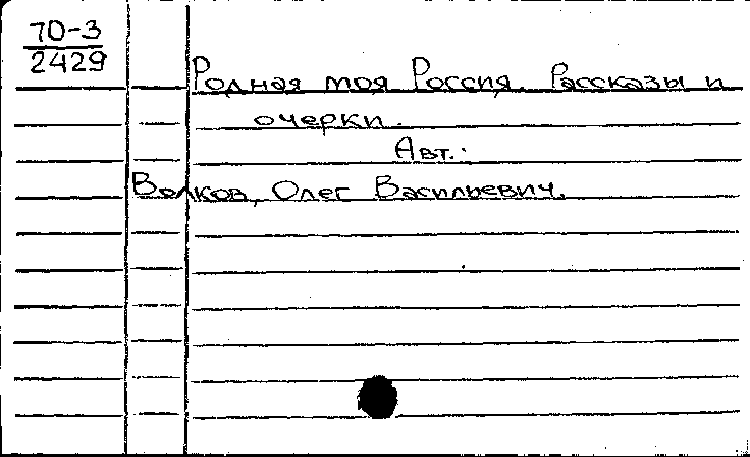 70-3
2429
Родная моя Россия. Рассказы и
очерки.
Авт.:
Волков, Олег Васильевич.